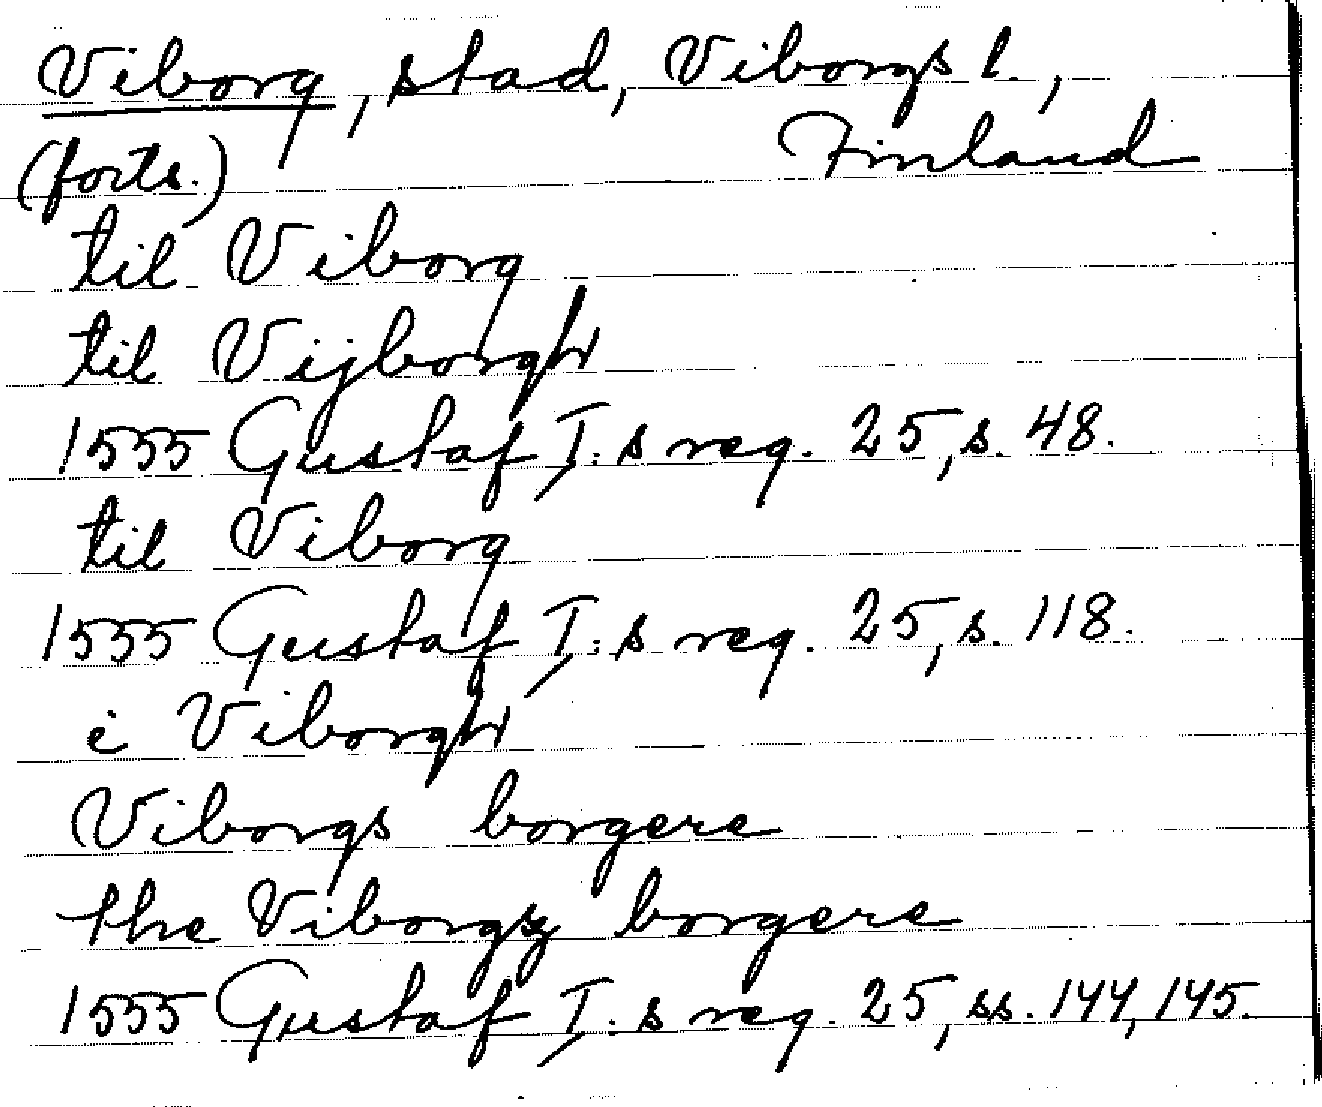 Viborg, stad, Viborgs l.,
Finland
(forts.)
til Viborg
til Vijborgh
1555 Gustaf I:s reg. 25, s. 48.
til Viborg
1555 Gustaf I:s reg. 25, s. 118.
i Viborgh
Viborgs borgere
the Viborgsz borgere
1555 Gustaf I:s reg. 25, ss. 144, 145.